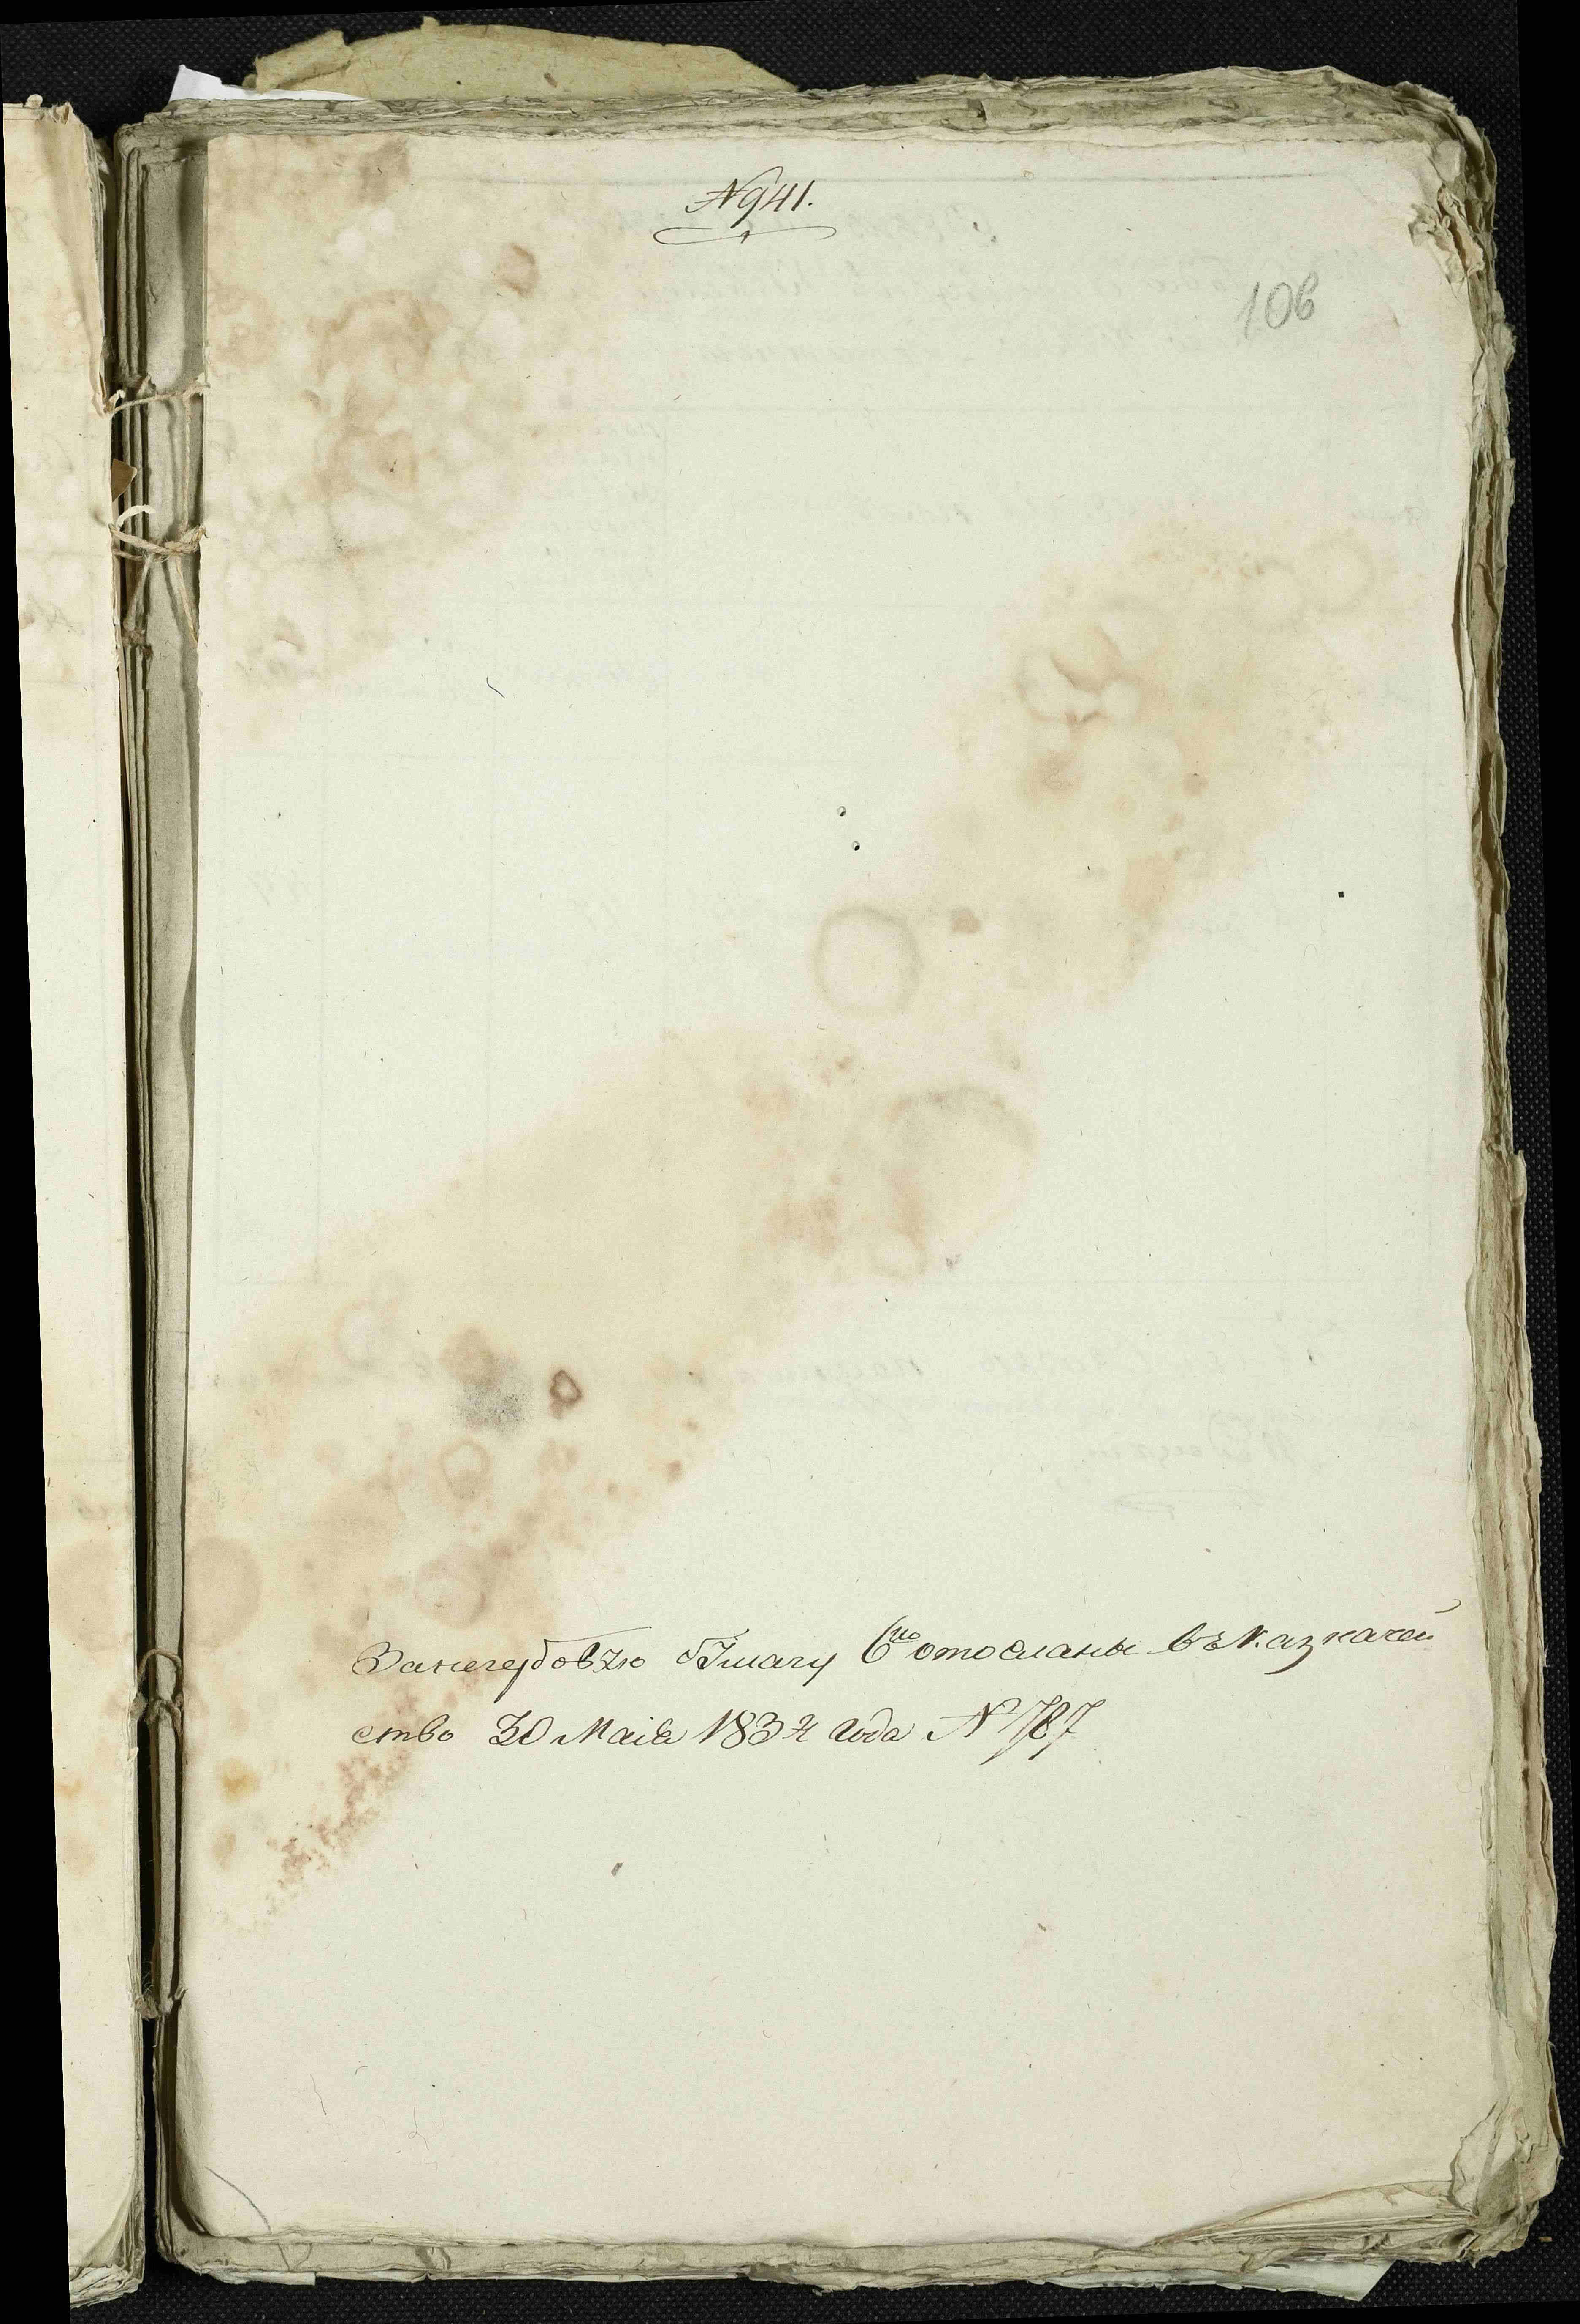 N 941.
106
Занегербовую бумагу 6 ру отосланы въ казначей
ство 30 Маія 1834 года N 787